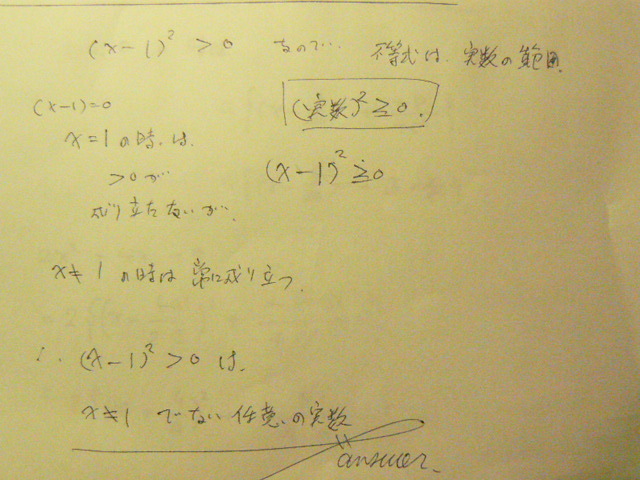 (x-1)² > 0 なので… 不等式は、実数の範囲.
(x-1)=0
(実数)² ≧ 0.
x=1 の時、は、
(x-1)² ≧0
>0 が
成り立たないが、
x≠1 の時は 常に成り立つ.
∴ (x-1)² > 0 は、
x≠1 でない 任意の実数
answer.